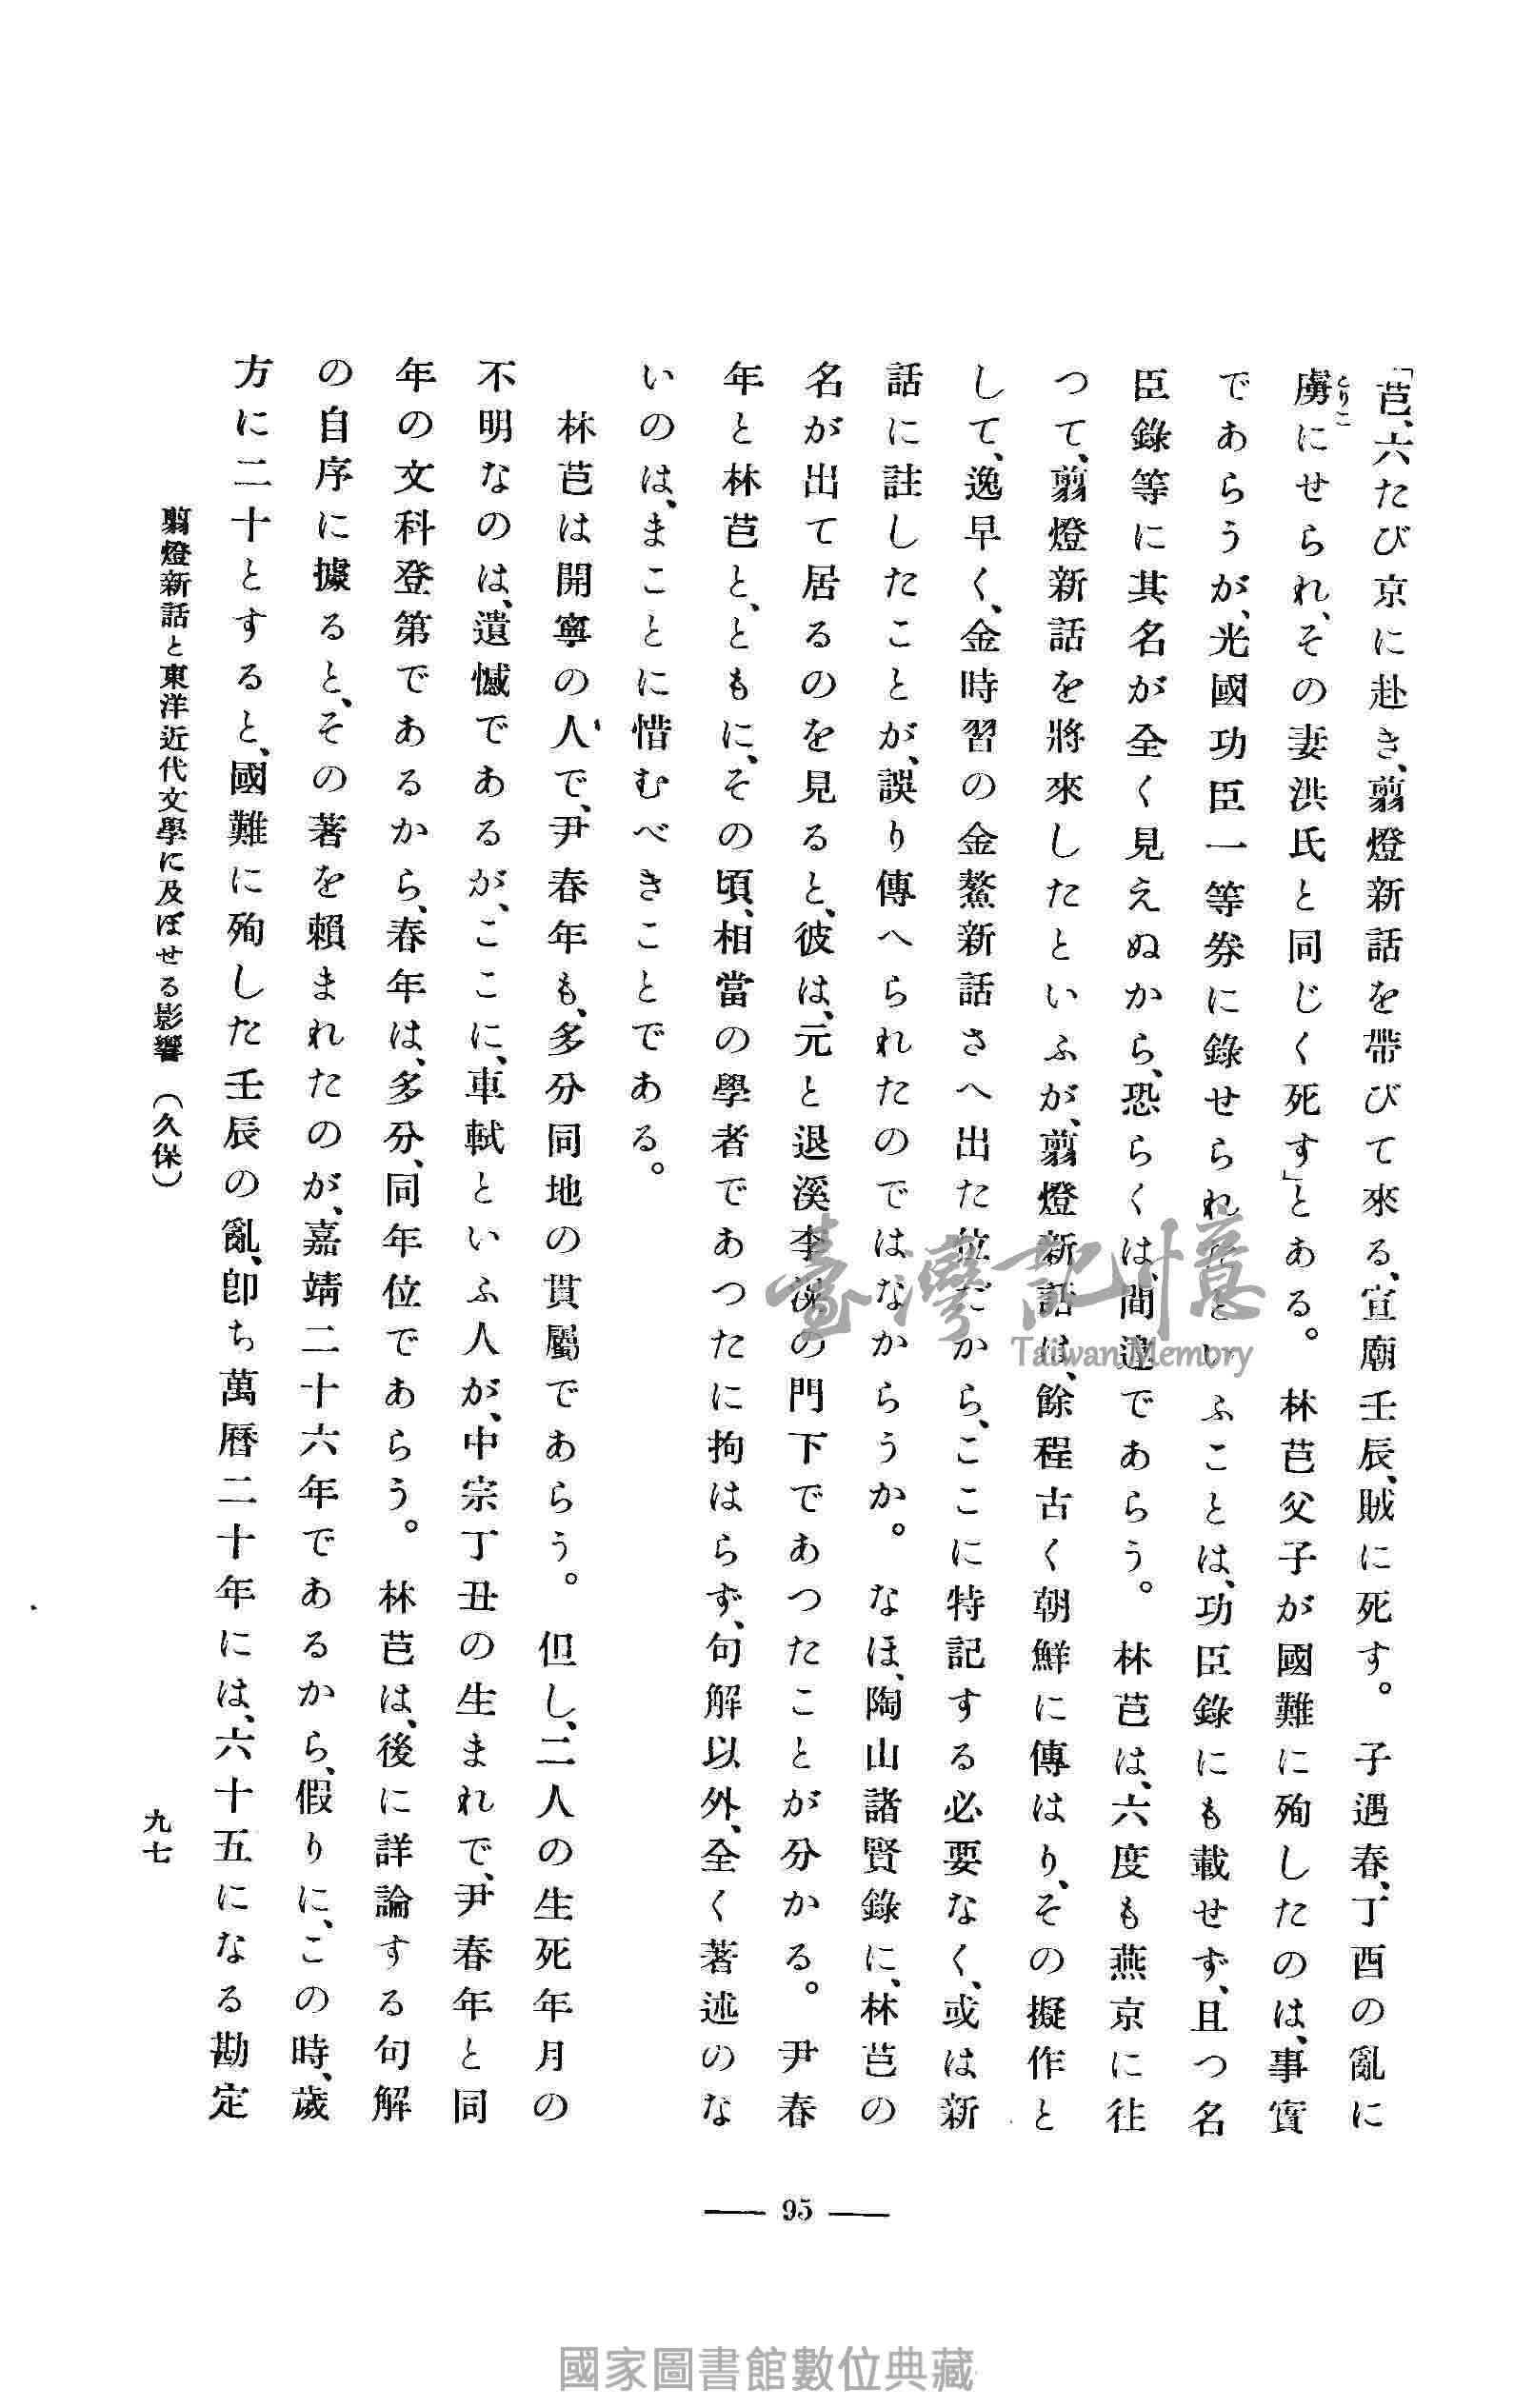 「芑、六たび京に赴き、翦燈新話を帶びて來る、宣廟壬辰、賊に死す。子遇春、丁酉の亂に
虜にせられ、その妻洪氏と同じく死す」とある。林芑父子が國難に殉したのは、事實
とりこ
であらうが、光國功臣一等券に錄せられたといふことは、功臣錄にも載せず、且つ名
臣錄等に其名が全く見えぬから、恐らくは、間違であらう。林芑は、六度も燕京に往
つて、翦燈新話を將來したといふが、翦燈新話は、餘程古く朝鮮に傳はり、その擬作と
して、逸早く、金時習の金鰲新話さへ出た位だから、ここに特記する必要なく、或は新
話に註したことが、誤り傳へられたのではなからうか。なほ、陶山諸賢錄に、林芑の
名が出て居るのを見ると、彼は、元と退溪李滉の門下であつたことが分かる。尹春
年と林芑と、ともに、その頃、相當の學者であつたに拘はらず、句解以外、全く著述のな
いのは、まことに惜むべきことである。
林芑は開寧の人で、尹春年も、多分同地の貫屬であらう。但し、二人の生死年月の
不明なのは、遺憾であるが、ここに、車軾といふ人が、中宗丁丑の生まれで、尹春年と同
年の文科登第であるから、春年は、多分、同年位であらう。林芑は、後に詳論する句解
の自序に據ると、その著を賴まれたのが、嘉靖二十六年であるから、假りに、この時、歲
方に二十とすると、國難に殉した壬辰の亂、卽ち萬曆二十年には、六十五になる勘定
翦燈新話と東洋近代文學に及ぼせる影響（久保）
九七
95
臺灣記憶
Taiwan Memory
國家圖書館數位典藏